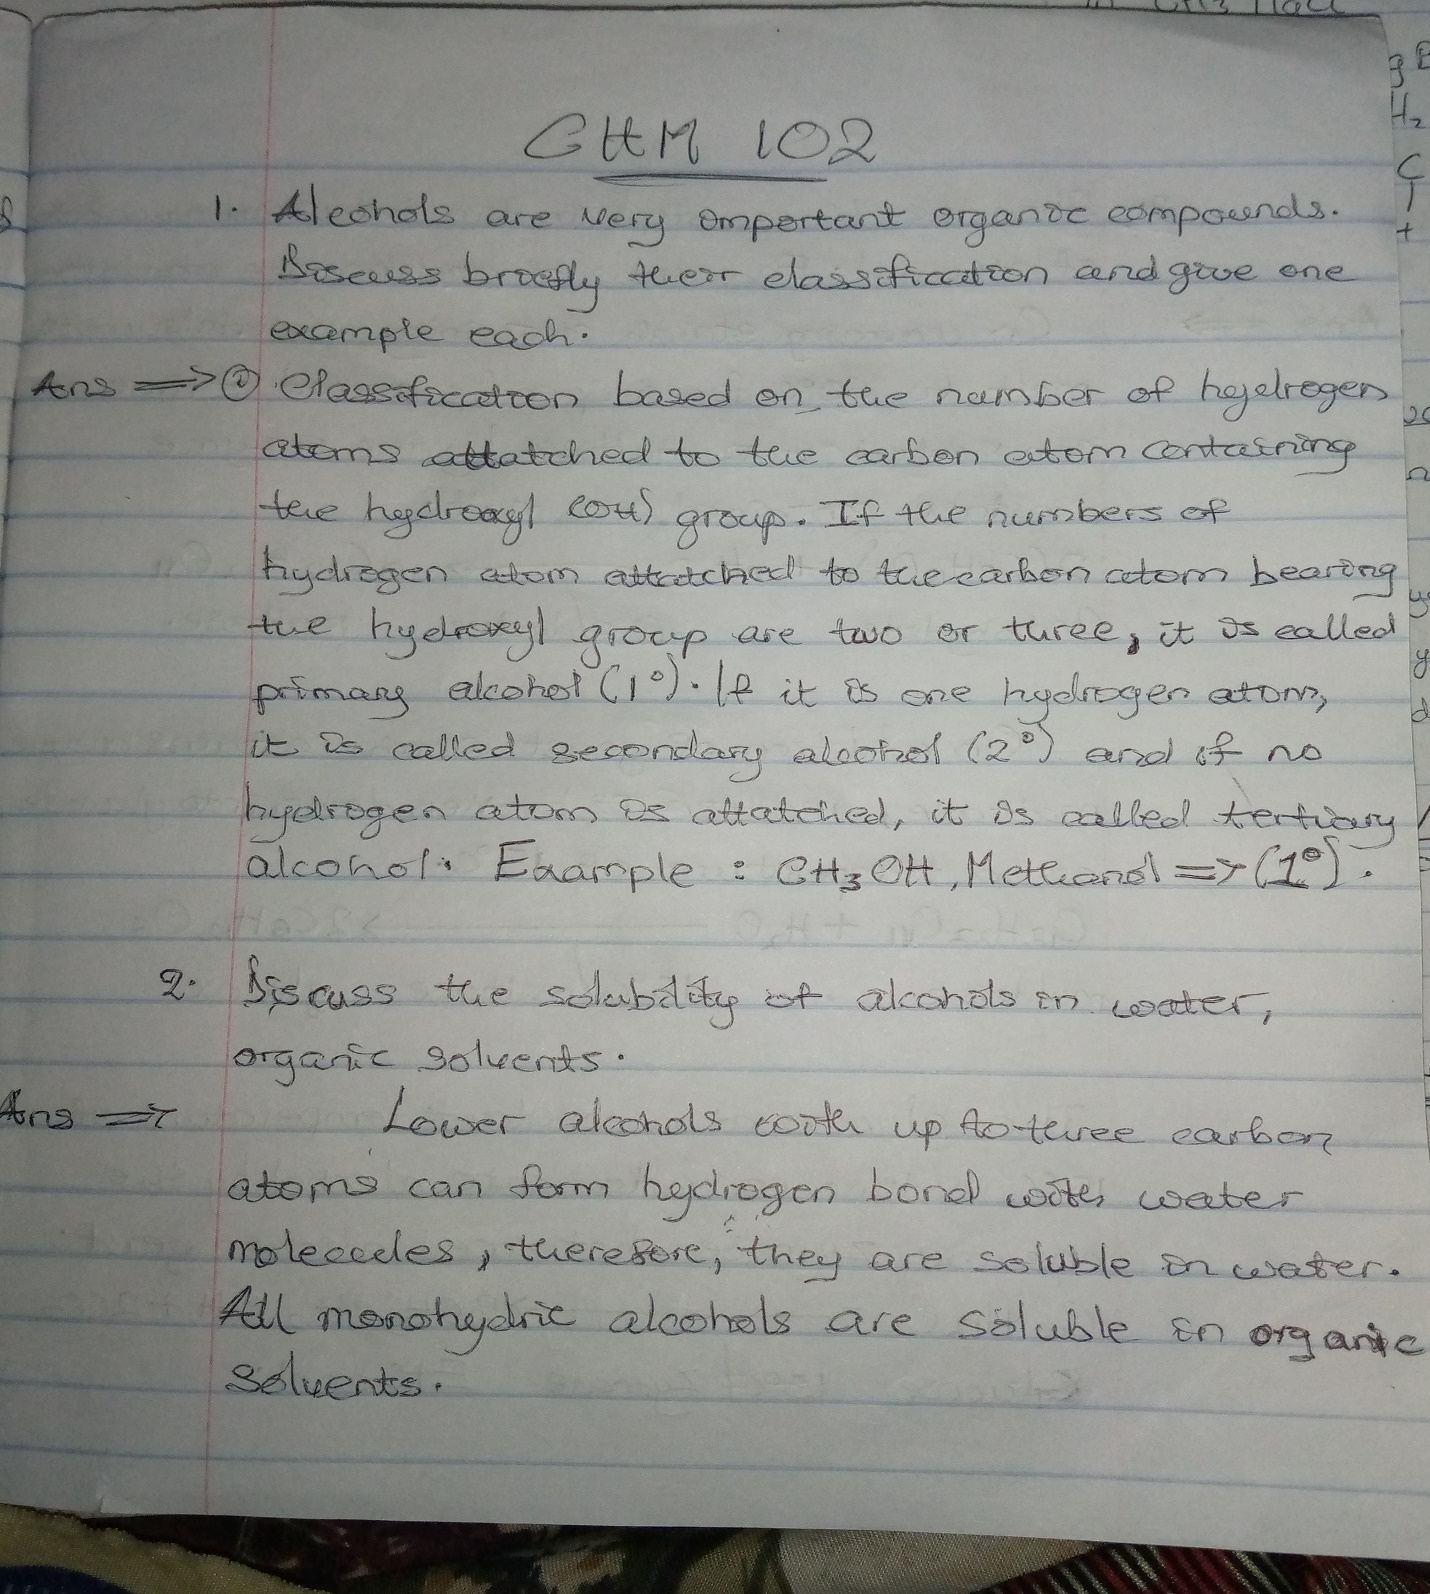 CHM 102
1. Alcohols are very important organic compounds.
Discuss briefly their classification and give one
example each.
Ans ⟹ (i) Classification based on the number of hydrogen
atoms attatched to the carbon atom containing
the hydroxyl (OH) group. If the numbers of
hydrogen atom attatched to the carbon atom bearing
the hydroxyl group are two or three, it is called
primary alcohol (1°). If it is one hydrogen atom,
it is called secondary alcohol (2°) and if no
hydrogen atom is attatched, it is called tertiary
alcohol. Example : CH₃OH, Methanol ⟹ (1°).
2. Discuss the solubility of alcohols in water,
organic solvents.
Ans ⟹ Lower alcohols with up to three carbon
atoms can form hydrogen bond with water
molecules, therefore, they are soluble in water.
All monohydric alcohols are soluble in organic
solvents.